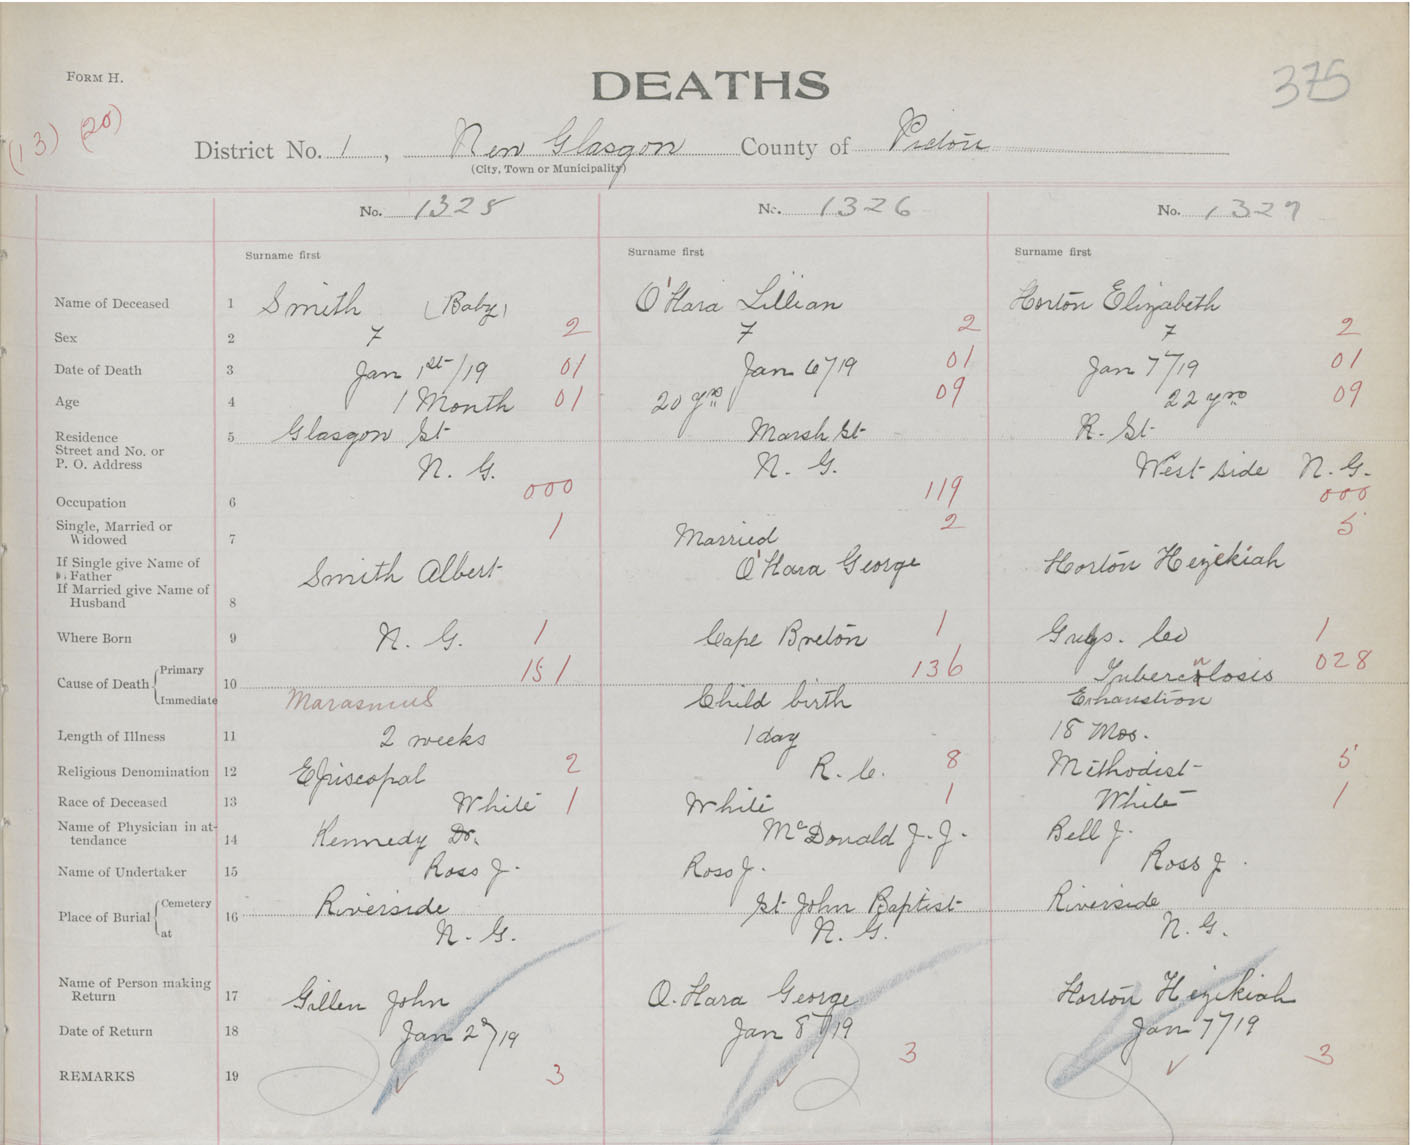 FORM H.
DEATHS
375
(13) (20)
District No. 1, New Glasgow County of Pictou
(City, Town or Municipality)
No. 1325 No. 1326 No. 1327
Surname first Surname first Surname first
Name of Deceased 1 Smith (Baby) O'Hara Lillian Horton Elizabeth
Sex 2 F 2 F 2 F 2
Date of Death 3 Jan 1st/19 01 Jan 6/19 01 Jan 7/19 01
Age 4 1 Month 01 20 yrs 09 22 yrs 09
Residence 5 Glasgow St Marsh St R. St
Street and No. or
P. O. Address N. G. N. G. West side N. G.
Occupation 6 000 119 000
Single, Married or 1 2 5
Widowed 7 Married
If Single give Name of
Father Smith Albert O'Hara George Horton Hezekiah
If Married give Name of
Husband 8
Where Born 9 N. G. 1 Cape Breton 1 Guys. Co 1
Cause of Death Primary 10 151 136 Tuberculosis 028
Immediate Marasmus Child birth Exhaustion
Length of Illness 11 2 weeks 1 day 18 Mos.
Religious Denomination 12 Episcopal 2 R. C. 8 Methodist 5
Race of Deceased 13 White 1 White 1 White 1
Name of Physician in at-
tendance 14 Kennedy Dr. McDonald J. J. Bell J.
Name of Undertaker 15 Ross J. Ross J. Ross J.
Place of Burial Cemetery 16 Riverside St John Baptist Riverside
at N. G. N. G. N. G.
Name of Person making
Return 17 Gillen John O.Hara George Horton Hezekiah
Date of Return 18 Jan 2d/19 Jan 8/19 Jan 7/19
REMARKS 19 3 3 3